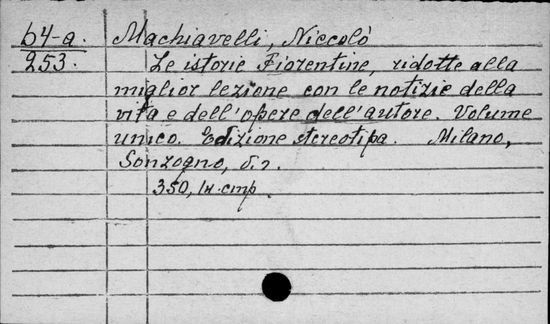 64-a. Machiavelli, Niccolò
253. Le istorie Fiorentine, ridotte alla
miglior lezione con le notizie della
vita e dell'opere dell'autore. Volume
unico. Edizione stereotipa. Milano,
Sonzogno, s.
350, 1 cmp.